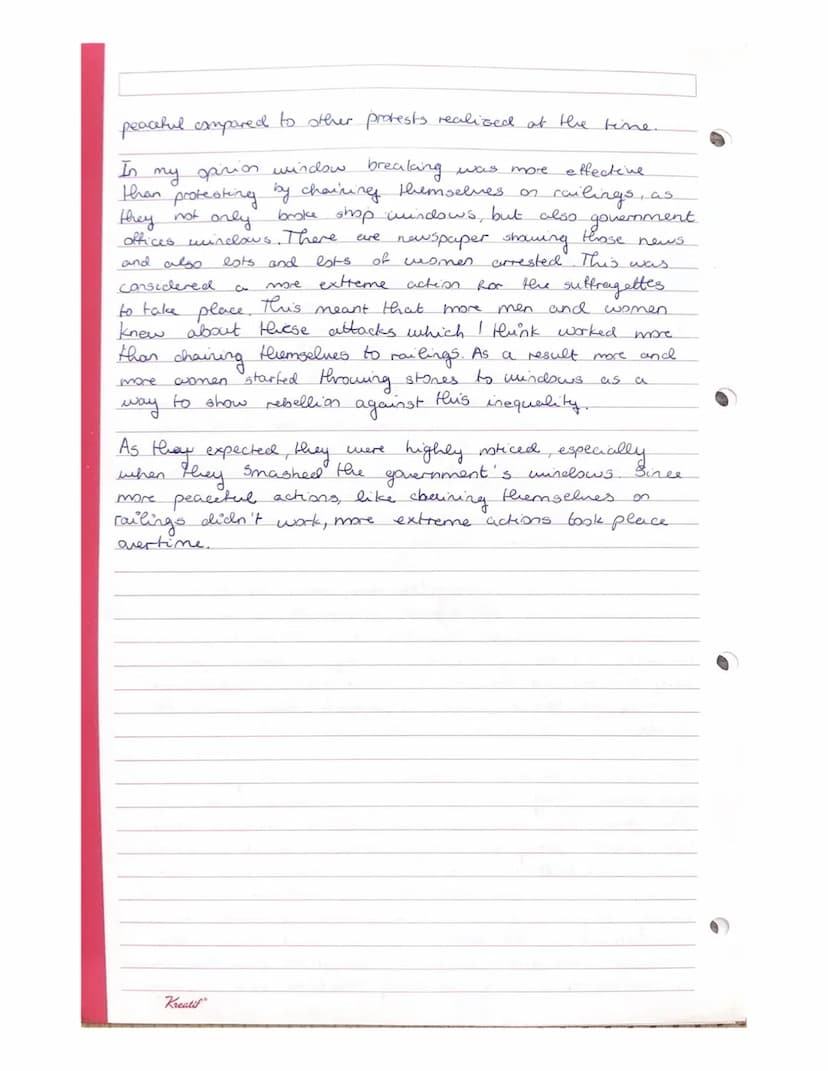 peaceful compared to other protests realized at the time.
In my opinion window breaking was more effective
than protesting by chaining themselves on railings, as
they not only broke shop windows, but also government
offices windows. There are newspaper showing those news
and also lots and lots of women arrested. This was
considered a more extreme action for the suffragettes
to take place. This meant that more men and women
knew about these attacks which I think worked more
than chaining themselves to railings. As a result more and
more women started throwing stones to windows as a
way to show rebellion against this inequality.
As they expected, they were highly noticed, especially
when they smashed the government's windows. Since
more peaceful actions, like chaining themselves on
railings didn't work, more extreme actions took place
overtime.
Kreatif